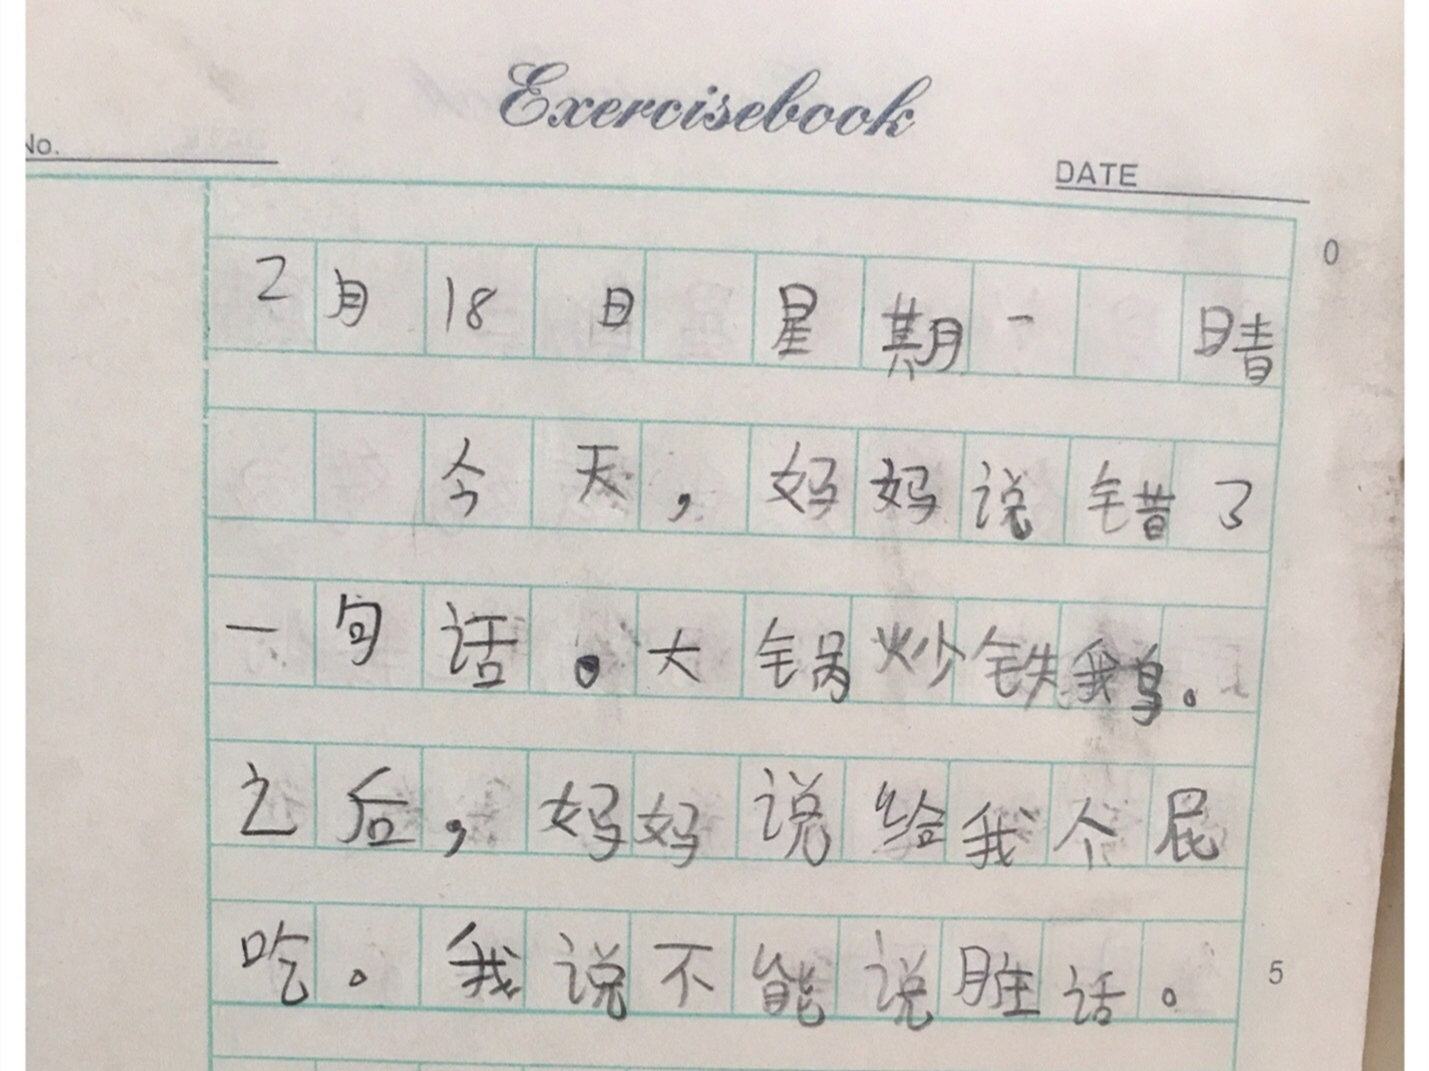 Exercisebook
No.
DATE
0
2月18日 星期一 晴
今天，妈妈说错了
一句话。大锅炒铁我鸟。
之后，妈妈说给我个屁
吃。我说不能说脏话。
5